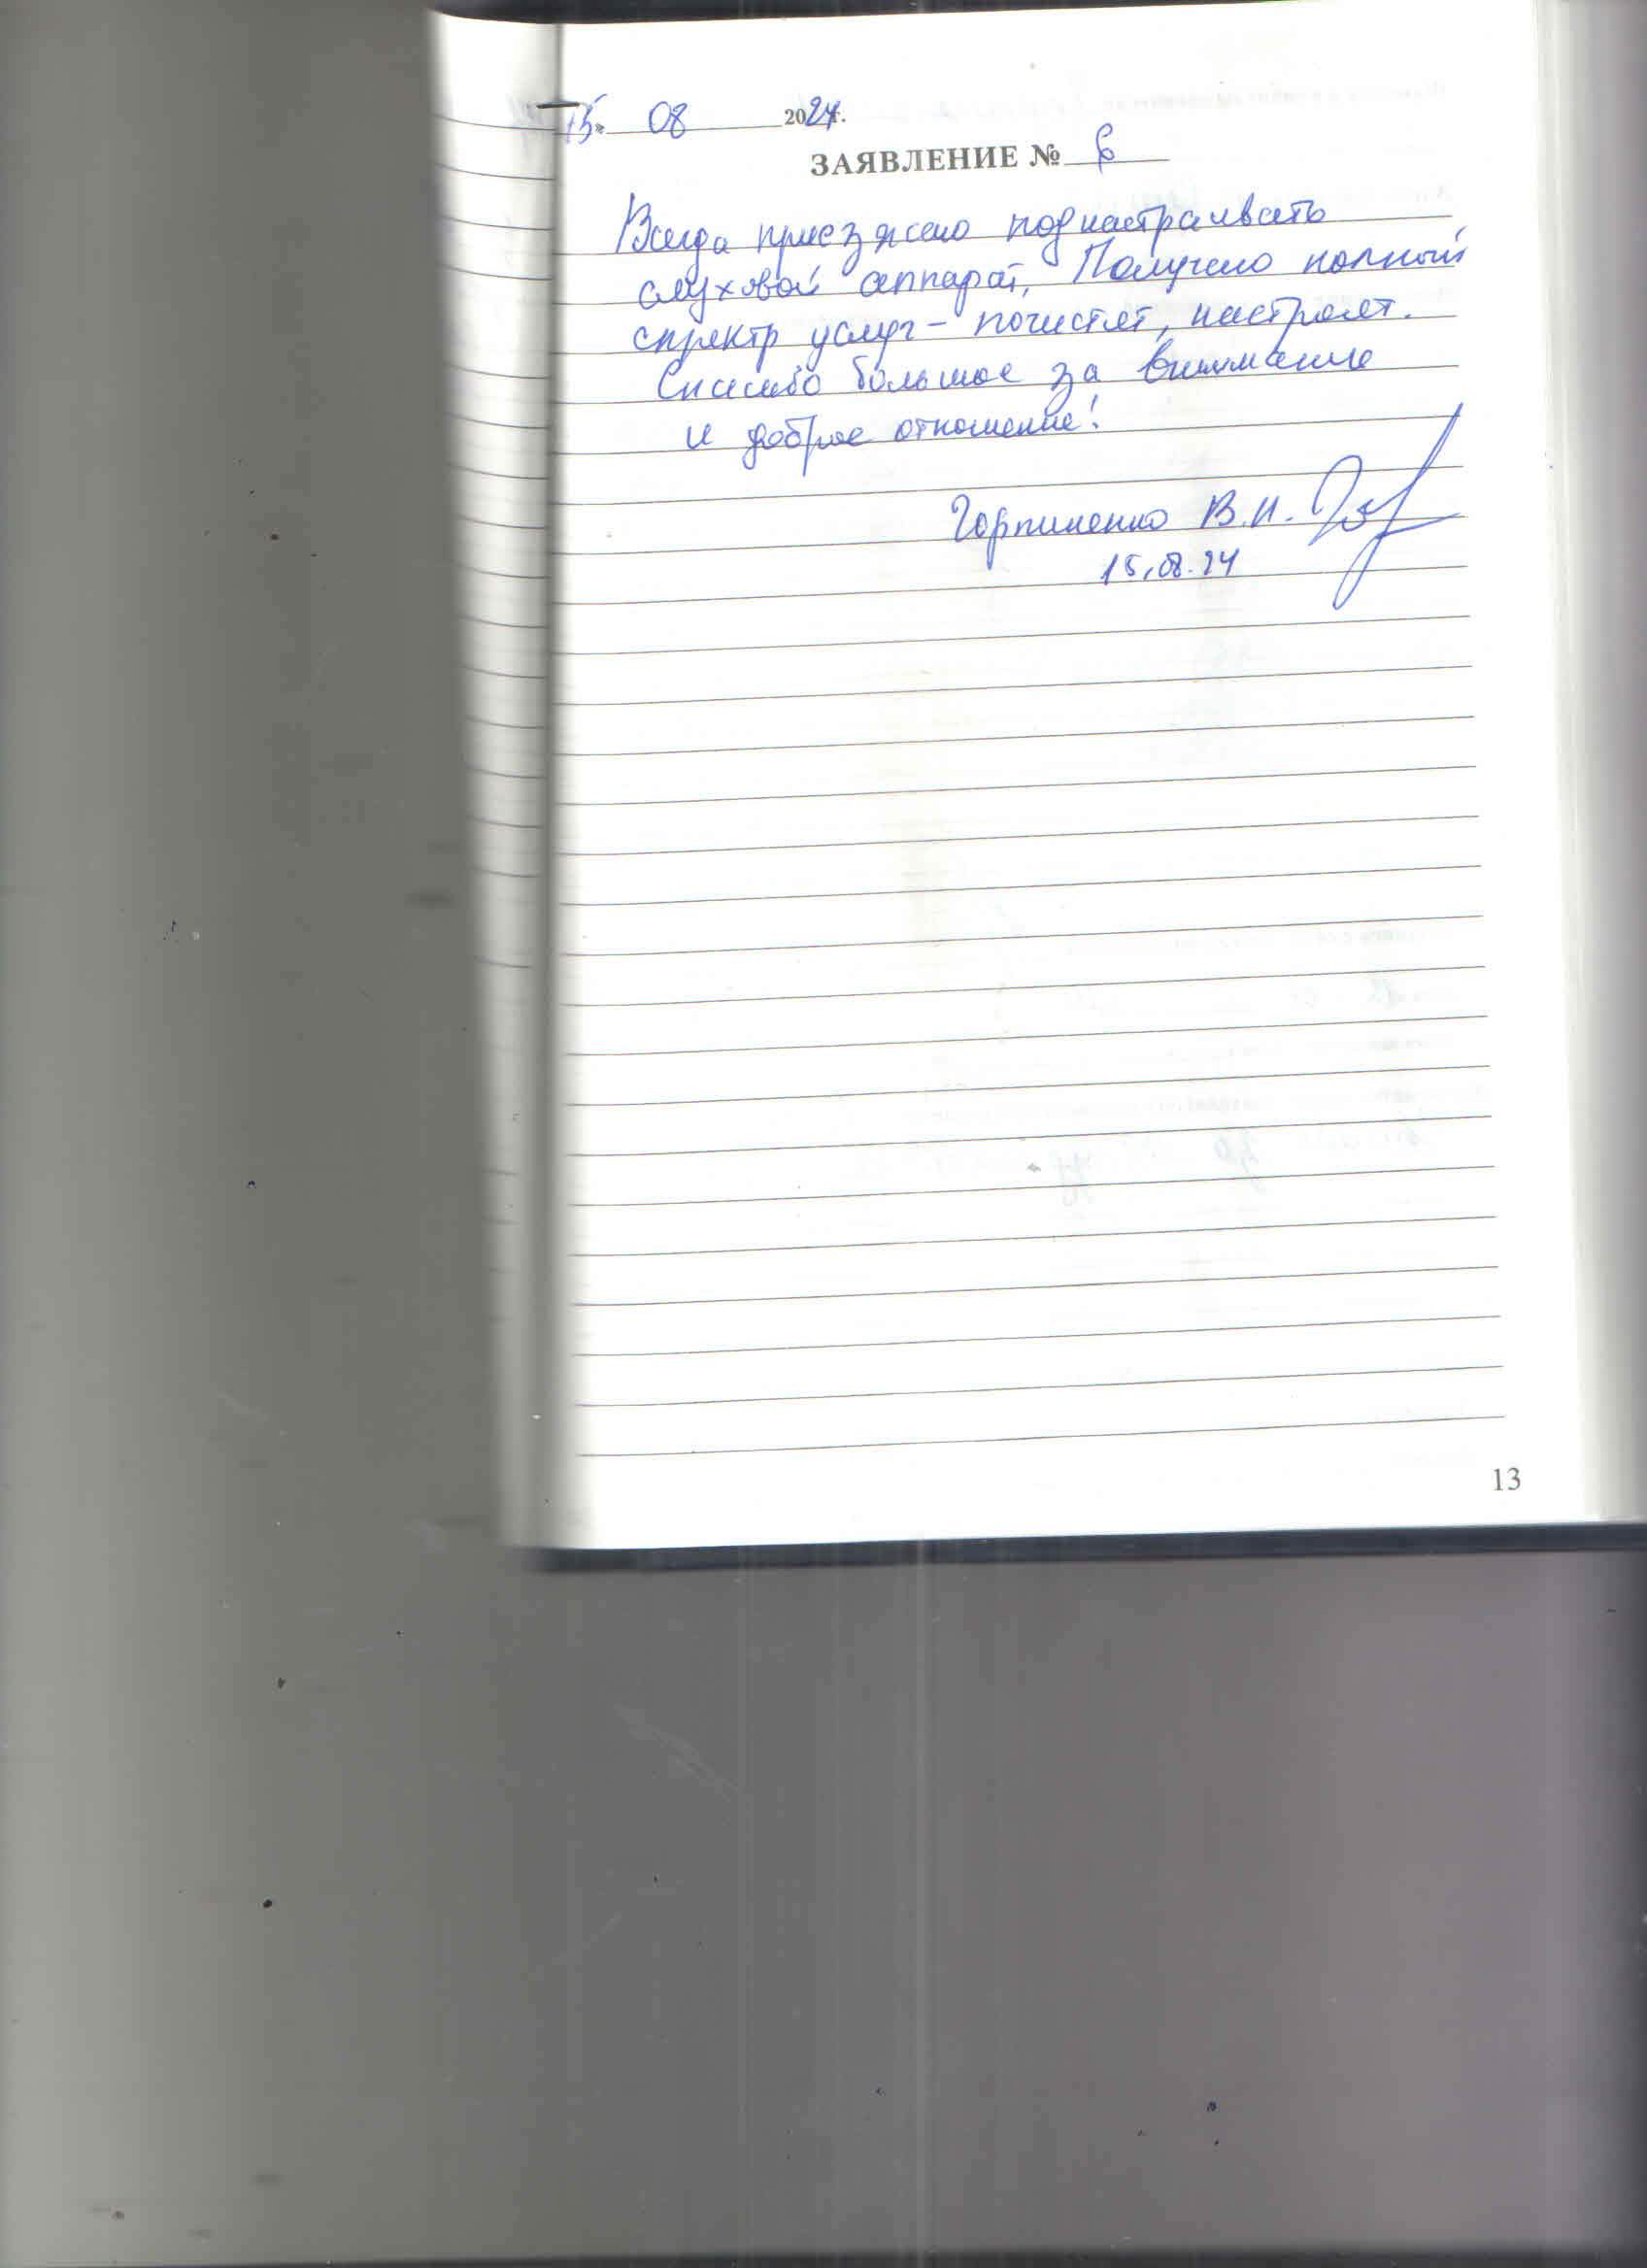 15» 08 2024г.
ЗАЯВЛЕНИЕ № 6
Всегда приезжаю поднастраивать
слуховой аппарат, Получаю полный
спректр услуг - почистят, настроят.
Спасибо большое за внимание
и доброе отношение!
Горпиненко В.И.
15.08.24
13